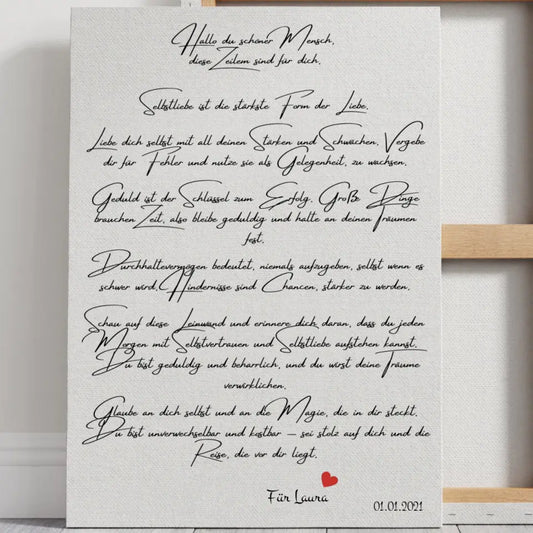 Hallo du schöner Mensch,
diese Zeilem sind für dich.
Selbstliebe ist die stärkste Form der Liebe.
Liebe dich selbst mit all deinen Stärken und Schwächen. Vergebe
dir für Fehler und nutze sie als Gelegenheit, zu wachsen.
Geduld ist der Schlüssel zum Erfolg. Große Dinge
brauchen Zeit, also bleibe geduldig und halte an deinen Träumen
fest.
Durchhaltevermögen bedeutet, niemals aufzugeben, selbst wenn es
schwer wird. Hindernisse sind Chancen, stärker zu werden.
Schau auf diese Leinwand und erinnere dich daran, dass du jeden
Morgen mit Selbstvertrauen und Selbstliebe aufstehen kannst.
Du bist geduldig und beharrlich, und du wirst deine Träume
verwirklichen.
Glaube an dich selbst und an die Magie, die in dir steckt.
Du bist unverwechselbar und kostbar – sei stolz auf dich und die
Reise, die vor dir liegt.
Für Laura
01.01.2021